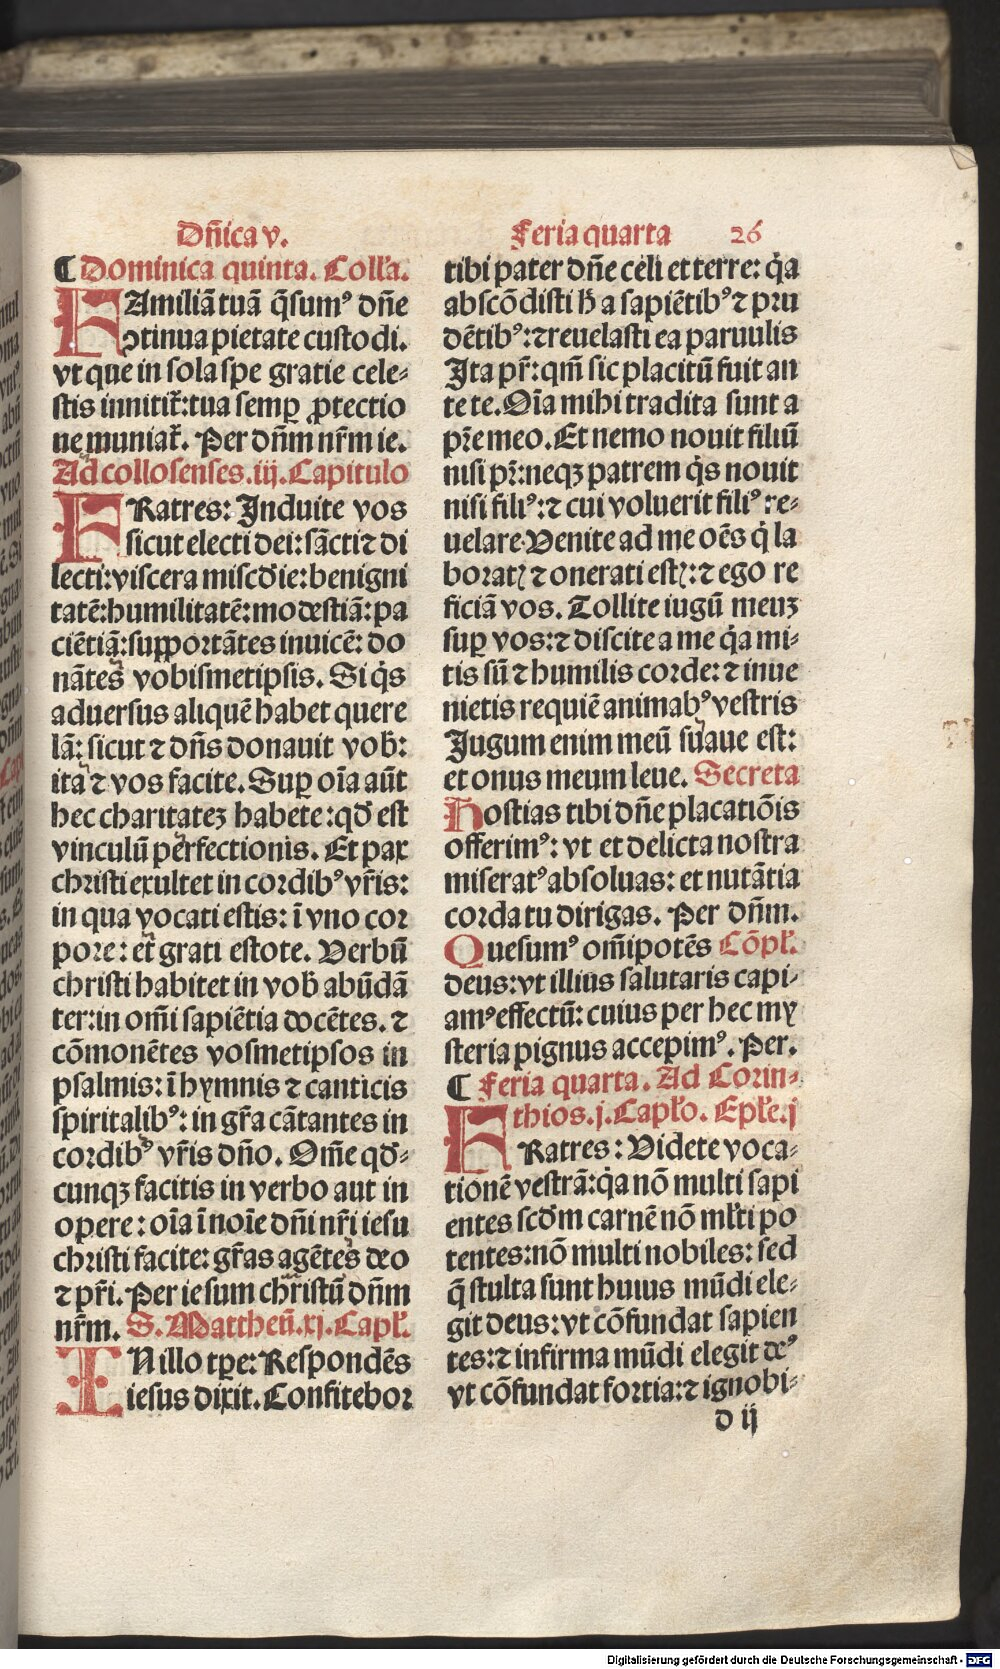 Dñica v.
Feria quarta 26
¶ Dominica quinta. Coll'a.
FAmiliã tuã q̃sumꝰ dñe
ↄtinua pietate custodi.
vt que in sola spe gratie cele⸗
stis innitit̃: tua semꝑ ꝓtectio
ne muniat̃. Per dñm nr̃m ie.
Ad collosenses. iij. Capitulo
FRatres: Induite vos
sicut electi dei: sãcti ⁊ di
lecti: viscera miscd̃ie: benigni
tatẽ: humilitatẽ: modestiã: pa
ciẽtiã: supportãtes inuicẽ: do
nãtes vobismetipsis. Si q̃s
aduersus aliquẽ habet quere
lã: sicut ⁊ dñs donauit vob̃:
ita ⁊ vos facite. Suꝑ oĩa aũt
hec charitateꝫ habete: qd̃ est
vinculũ perfectionis. Et pax
christi exultet in cordibꝰ vr̃is:
in qua vocati estis: ĩ vno cor
pore: et grati estote. Verbũ
christi habitet in vob̃ abũdã
ter: in om̃i sapiẽtia docẽtes. ⁊
cõmonẽtes vosmetipsos in
psalmis: ĩ hymnis ⁊ canticis
spiritalibꝰ: in gr̃a cãtantes in
cordibꝰ vr̃is dño. Om̃e qd̃⸗
cunqꝫ facitis in verbo aut in
opere: oĩa ĩ noĩe dñi nr̃i iesu
christi facite: gr̃as agẽtes deo
⁊ pr̃i. Per iesum christũ dñm
nr̃m. S. Mattheũ. xj. Capl̃.
IN illo tꝑe: Respondẽs
iesus dixit. Confitebor
tibi pater dñe celi et terre: q̃a
abscõdisti h̃ a sapiẽtibꝰ ⁊ pru
dẽtibꝰ: ⁊ reuelasti ea paruulis
Ita pr̃: qm̃ sic placitũ fuit an
te te. Oĩa mihi tradita sunt a
pr̃e meo. Et nemo nouit filiũ
nisi pr̃: neqꝫ patrem q̃s nouit
nisi filiꝰ: ⁊ cui voluerit filiꝰ re⸗
uelare. Venite ad me oẽs q̃ la
boratꝭ ⁊ onerati estꝭ: ⁊ ego re
ficiã vos. Tollite iugũ meuꝫ
suꝑ vos: ⁊ discite a me q̃a mi⸗
tis sũ ⁊ humilis corde: ⁊ inue
nietis requiẽ animabꝰ vestris
Jugum enim meũ suaue est:
et onus meum leue. Secreta
Hostias tibi dñe placatiõis
offerimꝰ: vt et delicta nostra
miseratꝰ absoluas: et nutãtia
corda tu dirigas. Per dñm.
Quesumꝰ om̃ipotẽs Cõpl̃.
deus: vt illius salutaris capi⸗
amꝰ effectũ: cuius per hec my
steria pignus accepimꝰ. Per.
¶ Feria quarta. Ad Corin⸗
thios. j. Capl̃o. Epl̃e. j
FRatres: Videte voca⸗
tionẽ vestrã: q̃a nõ multi sapi
entes scd̃m carnẽ nõ ml̃ti po
tentes: nõ multi nobiles: sed
q̃ stulta sunt huius mũdi ele⸗
git deus: vt cõfundat sapien
tes: ⁊ infirma mũdi elegit deꝰ
vt cõfundat fortia: ⁊ ignobi⸗
d ij
Digitalisierung gefördert durch die Deutsche Forschungsgemeinschaft - DFG